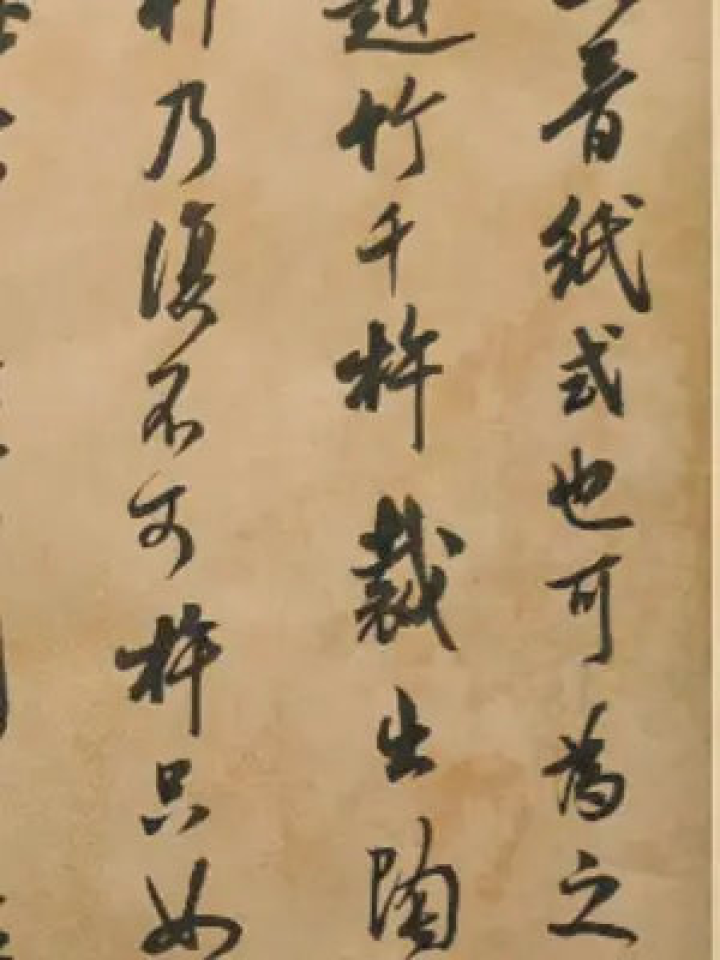 晉紙式也可為之
越竹千杵裁出陶
乃復不可杵只如